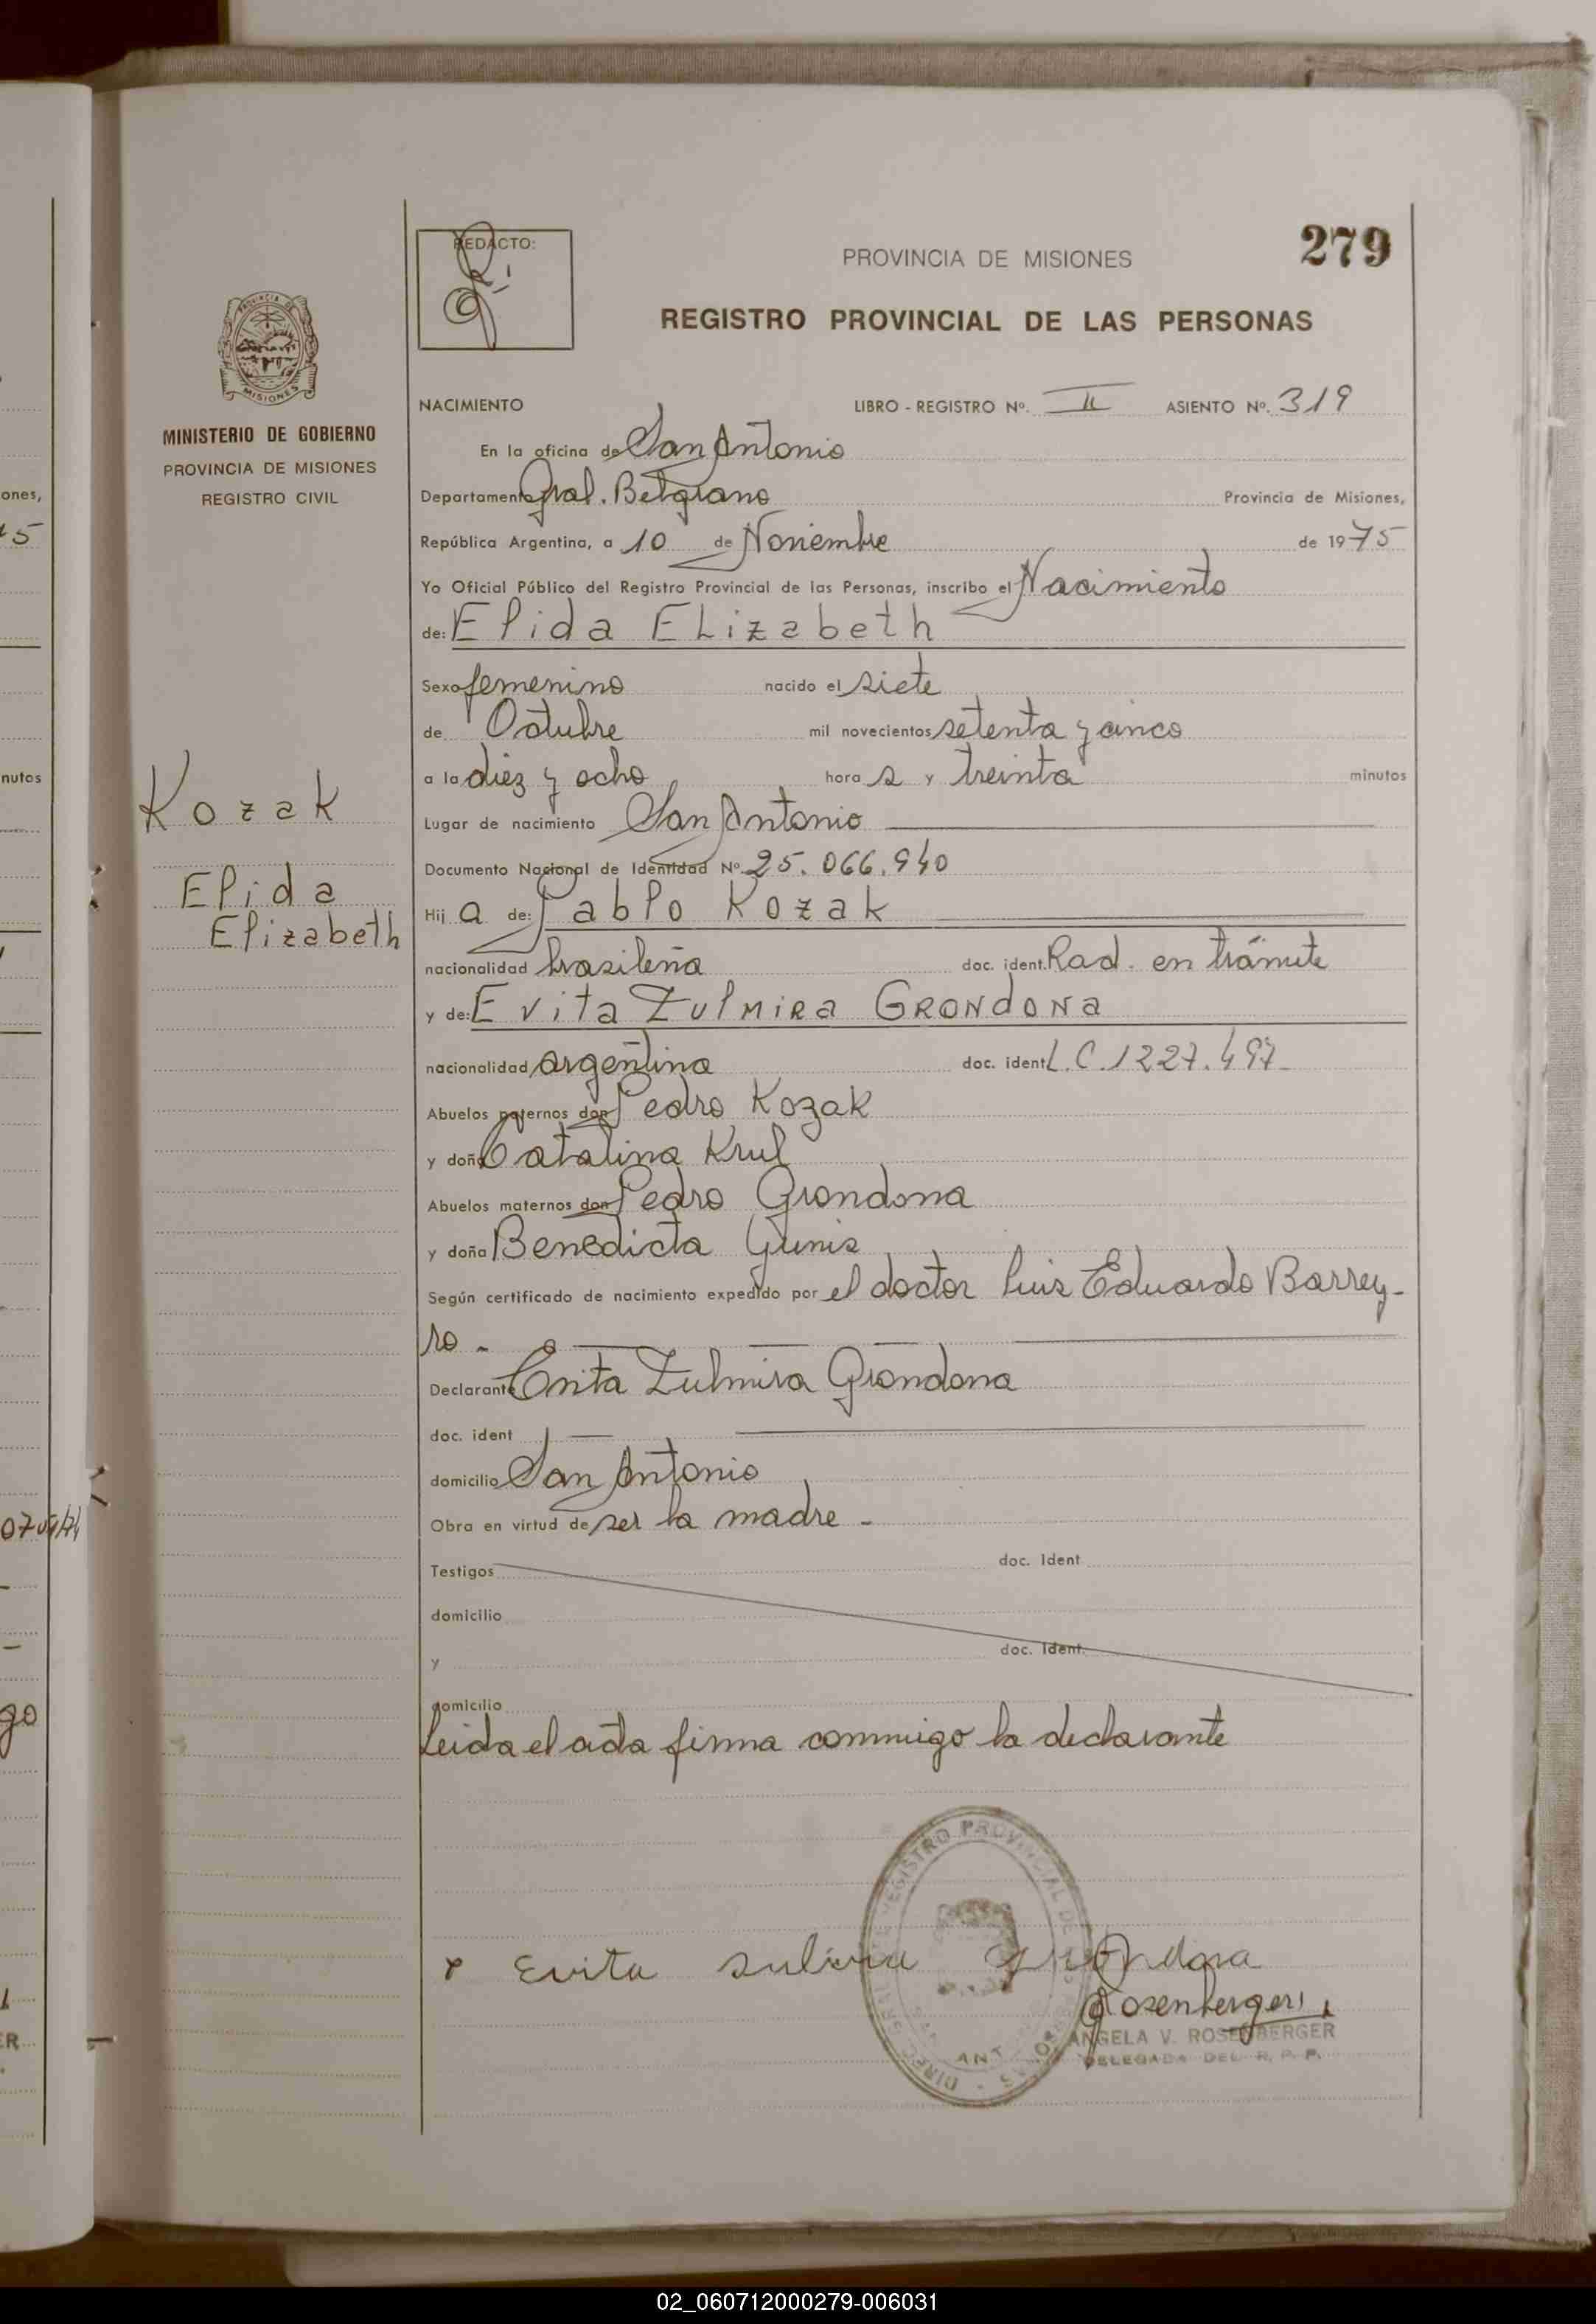 279
REDACTO:
PROVINCIA DE MISIONES
REGISTRO PROVINCIAL DE LAS PERSONAS
PROVINCIA DE MISIONES
MINISTERIO DE GOBIERNO
PROVINCIA DE MISIONES
REGISTRO CIVIL
Kozak
Elida
Elizabeth
NACIMIENTO LIBRO - REGISTRO Nº. II ASIENTO Nº. 319
En la oficina de San Antonio
Departamento Gral. Belgrano Provincia de Misiones,
República Argentina, a 10 de Noviembre de 1975
Yo Oficial Público del Registro Provincial de las Personas, inscribo el Nacimiento
de: Elida ELizabeth
Sexo femenino nacido el siete
de Octubre mil novecientos setenta y cinco
a la diez y ocho hora s y treinta minutos
Lugar de nacimiento San Antonio
Documento Nacional de Identidad Nº 25.066.940
Hij a de: Pablo Kozak
nacionalidad brasileña doc. ident. Rad. en trámite
y de: Evita Zulmira GRONdONa
nacionalidad argentina doc. ident L.C. 1227.497-
Abuelos paternos don Pedro Kozak
y doña Catalina Krul
Abuelos maternos don Pedro Grondona
y doña Benedicta
Según certificado de nacimiento expedido por el doctor Luis Eduardo Barrey-
ro -
Declarante Evita Zulmira Grondona
doc. ident
domicilio San Antonio
Obra en virtud de ser la madre -
Testigos doc. Ident
domicilio
y doc. Ident.
domicilio
Leida el acta firma conmigo la declarante
Evita
Rosenberger
ANGELA V. ROSENBERGER
DELEGADA DEL R. P. P.
ones,
nutos
02_060712000279-006031